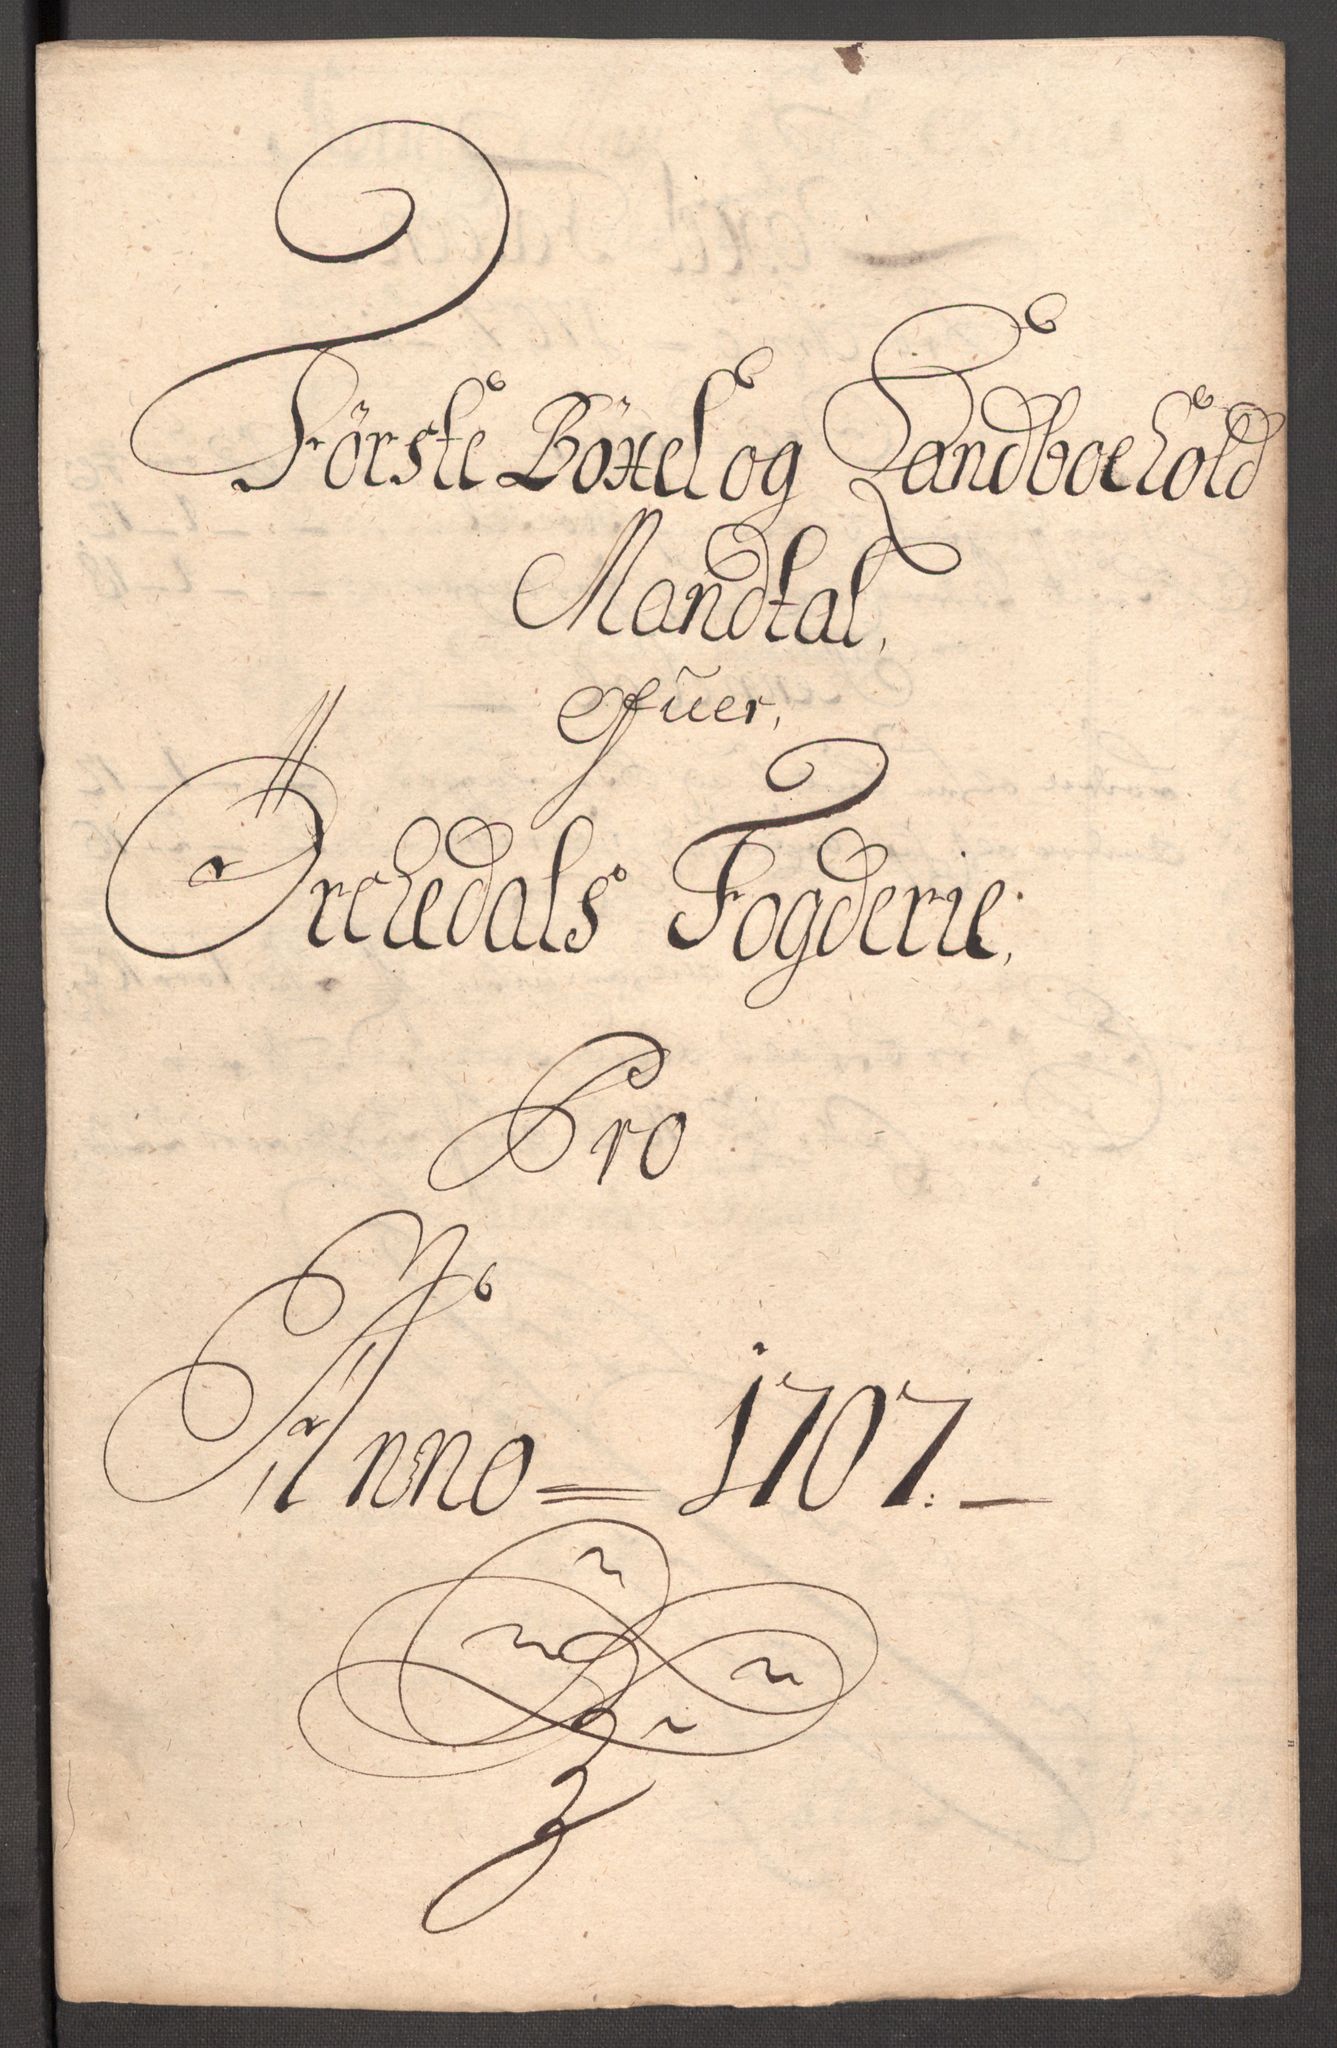 Første Böxel og Landboehold
Mandtal,
Ofuer,
Orchedals Fogderie,
Pro
Anno 1707.